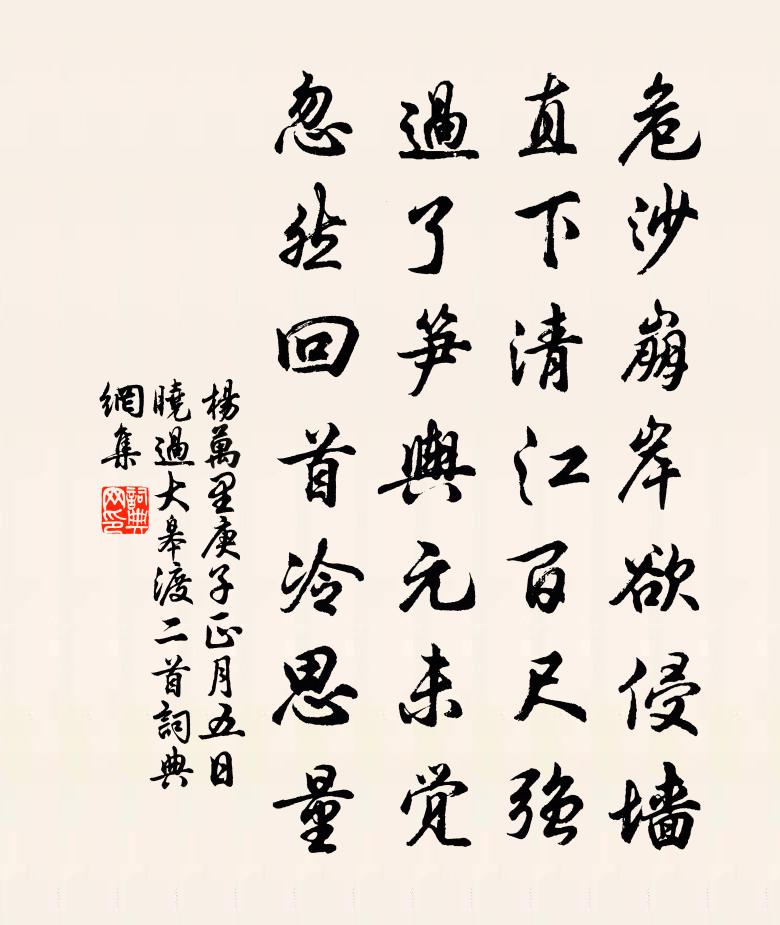 危沙崩岸欲侵墙
直下清江百尺強
過了笋輿元未覚
忽然回首冷思量
楊萬里庚子正月五日
曉過大皋渡二首詞典
網集
詞典
网印